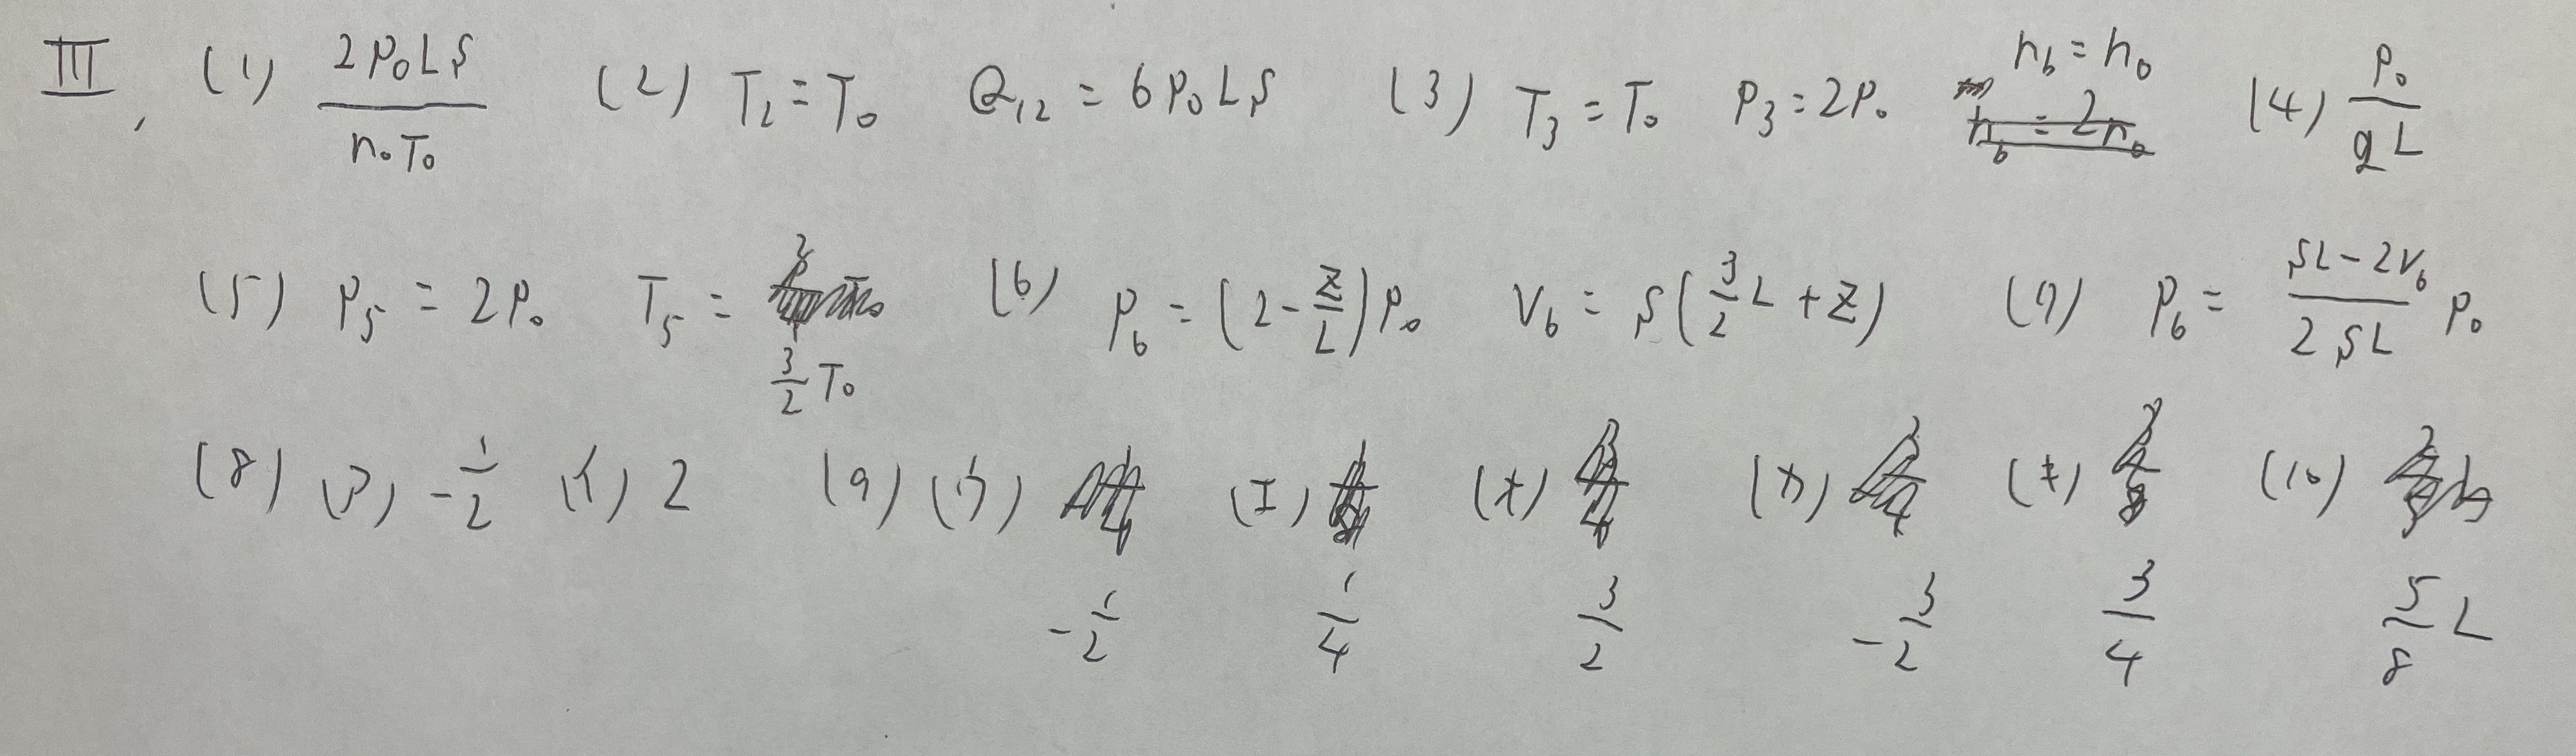 III, (1) 2P₀LS/n₀T₀ (2) T₂=T₀ Q₁₂ = 6P₀LS (3) T₃=T₀ P₃=2P₀ n_b=n₀ (4) P₀/gL
(5) P₅ = 2P₀ T₅ = 3/2 T₀ (6) P₆ = (2-z/L)P₀ V₆ = S(3/2 L + z) (7) P₆ = (5L-2V₆)/(2SL) P₀
(8) (ア) -1/2 (イ) 2 (9) (ウ) -1/2 (エ) 1/4 (オ) 3/2 (カ) -3/2 (キ) 3/4 (10) 5/8 L